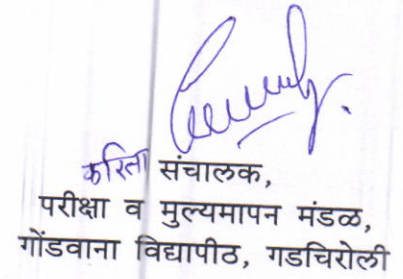 करिता संचालक,
परीक्षा व मुल्यमापन मंडळ,
गोंडवाना विद्यापीठ, गडचिरोली